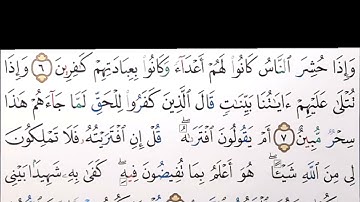 وَإِذَا حُشِرَ ٱلنَّاسُ كَانُوا۟ لَهُمْ أَعْدَآءً وَكَانُوا۟ بِعِبَادَتِهِمْ كَٰفِرِينَ ٦ وَإِذَا
تُتْلَىٰ عَلَيْهِمْ ءَايَٰتُنَا بَيِّنَٰتٍ قَالَ ٱلَّذِينَ كَفَرُوا۟ لِلْحَقِّ لَمَّا جَآءَهُمْ هَٰذَا
سِحْرٌ مُّبِينٌ ٧ أَمْ يَقُولُونَ ٱفْتَرَىٰهُ ۖ قُلْ إِنِ ٱفْتَرَيْتُهُۥ فَلَا تَمْلِكُونَ
لِى مِنَ ٱللَّهِ شَيْـًٔا ۖ هُوَ أَعْلَمُ بِمَا تُفِيضُونَ فِيهِ ۖ كَفَىٰ بِهِۦ شَهِيدًۢا بَيْنِى